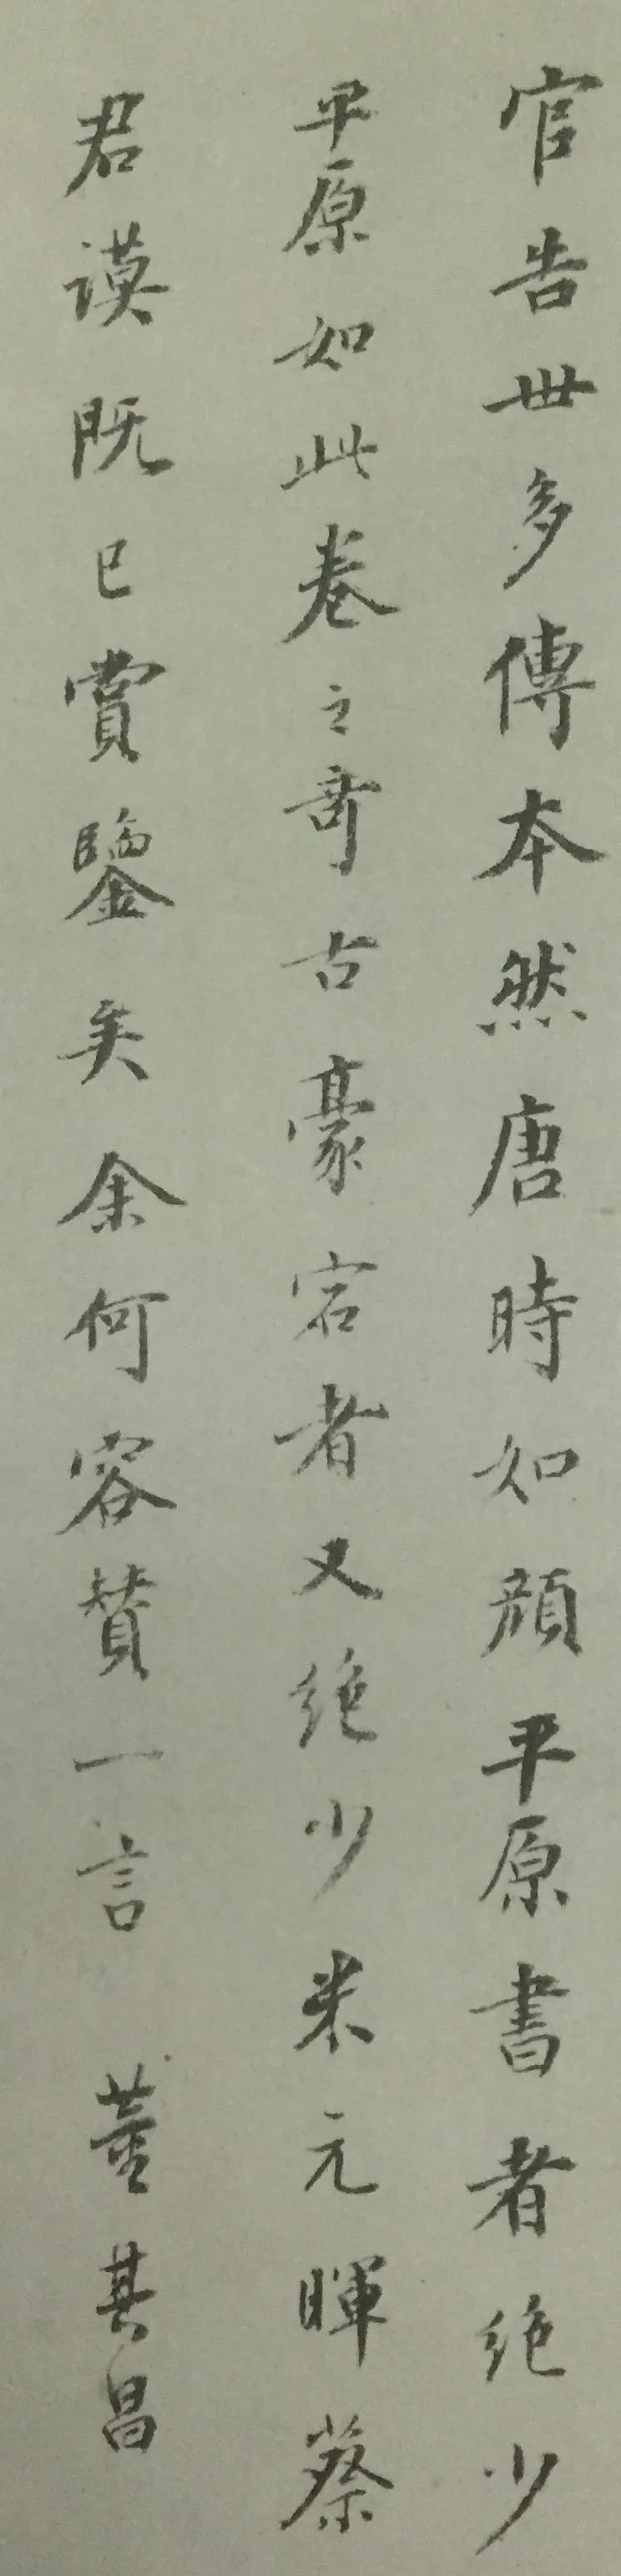 官告世多傳本然唐時如顏平原書者絶少
平原如此卷之奇古豪宕者又絶少米元暉蔡
君謨既已賞鑒矣余何容賛一言 董其昌